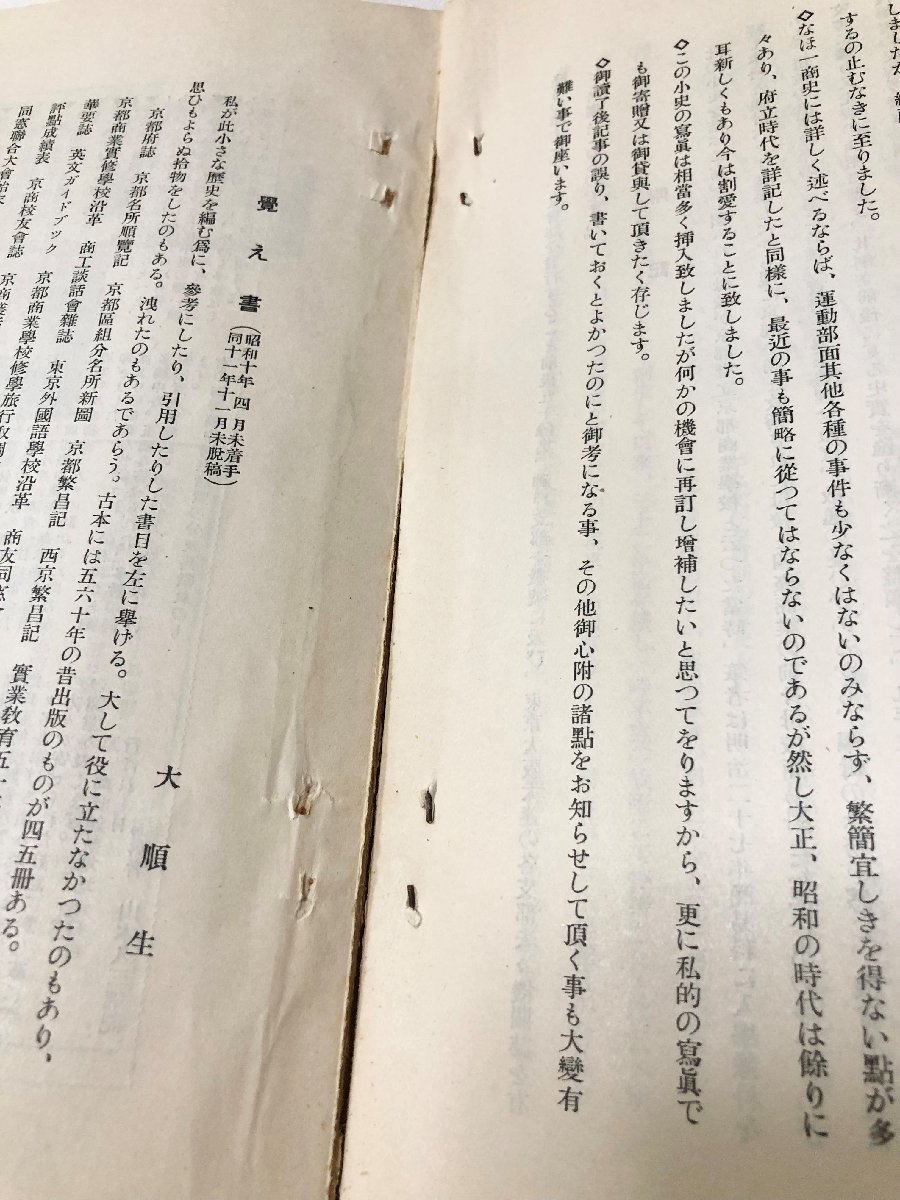 するの止むなきに至りました。
◇なほ一商史には詳しく述べるならば、運動部面其他各種の事件も少なくはないのみならず、繁簡宜しきを得ない點が多
々あり、府立時代を詳記したと同様に、最近の事も簡略に從つてはならないのであるが然し大正、昭和の時代は餘りに
耳新しくもあり今は割愛することに致しました。
◇この小史の寫眞は相當多く挿入致しましたが何かの機會に再訂し增補したいと思つてをりますから、更に私的の寫眞で
も御寄贈又は御貸與して頂きたく存じます。
◇御讀了後記事の誤り、書いておくとよかつたのにと御考になる事、その他御心附の諸點をお知らせして頂く事も大變有
難い事で御座います。
覺え書
(昭和十年四月末着手
同十一年十一月末脫稿)
大順生
私が此小さな歷史を編む爲に、參考にしたり、引用したりした書目を左に擧ける。大して役に立たなかつたのもあり、
思ひもよらぬ拾物をしたのもある。洩れたのもあるであらう。古本には五六十年の昔出版のものが四五冊ある。
京都府誌 京都名所順覽記 京都區組分名所新圖 京都繁昌記 西京繁昌記 實業敎育五十
京都商業實修學校沿革 商工談話會雜誌 東京外國語學校沿革 商友同窓
華要誌 英文ガイドブック 京都商業學校修學旅行
評點成績表 京商校友會誌
同窓聯合大會始末